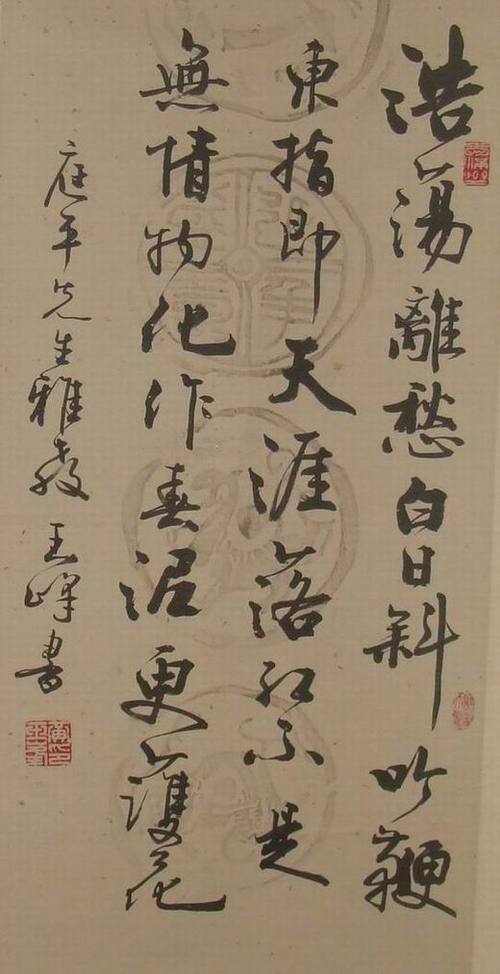 浩蕩離愁白日斜吟鞭
東指即天涯落紅不是
無情物化作春泥更護花
庭平先生雅教 王峰書